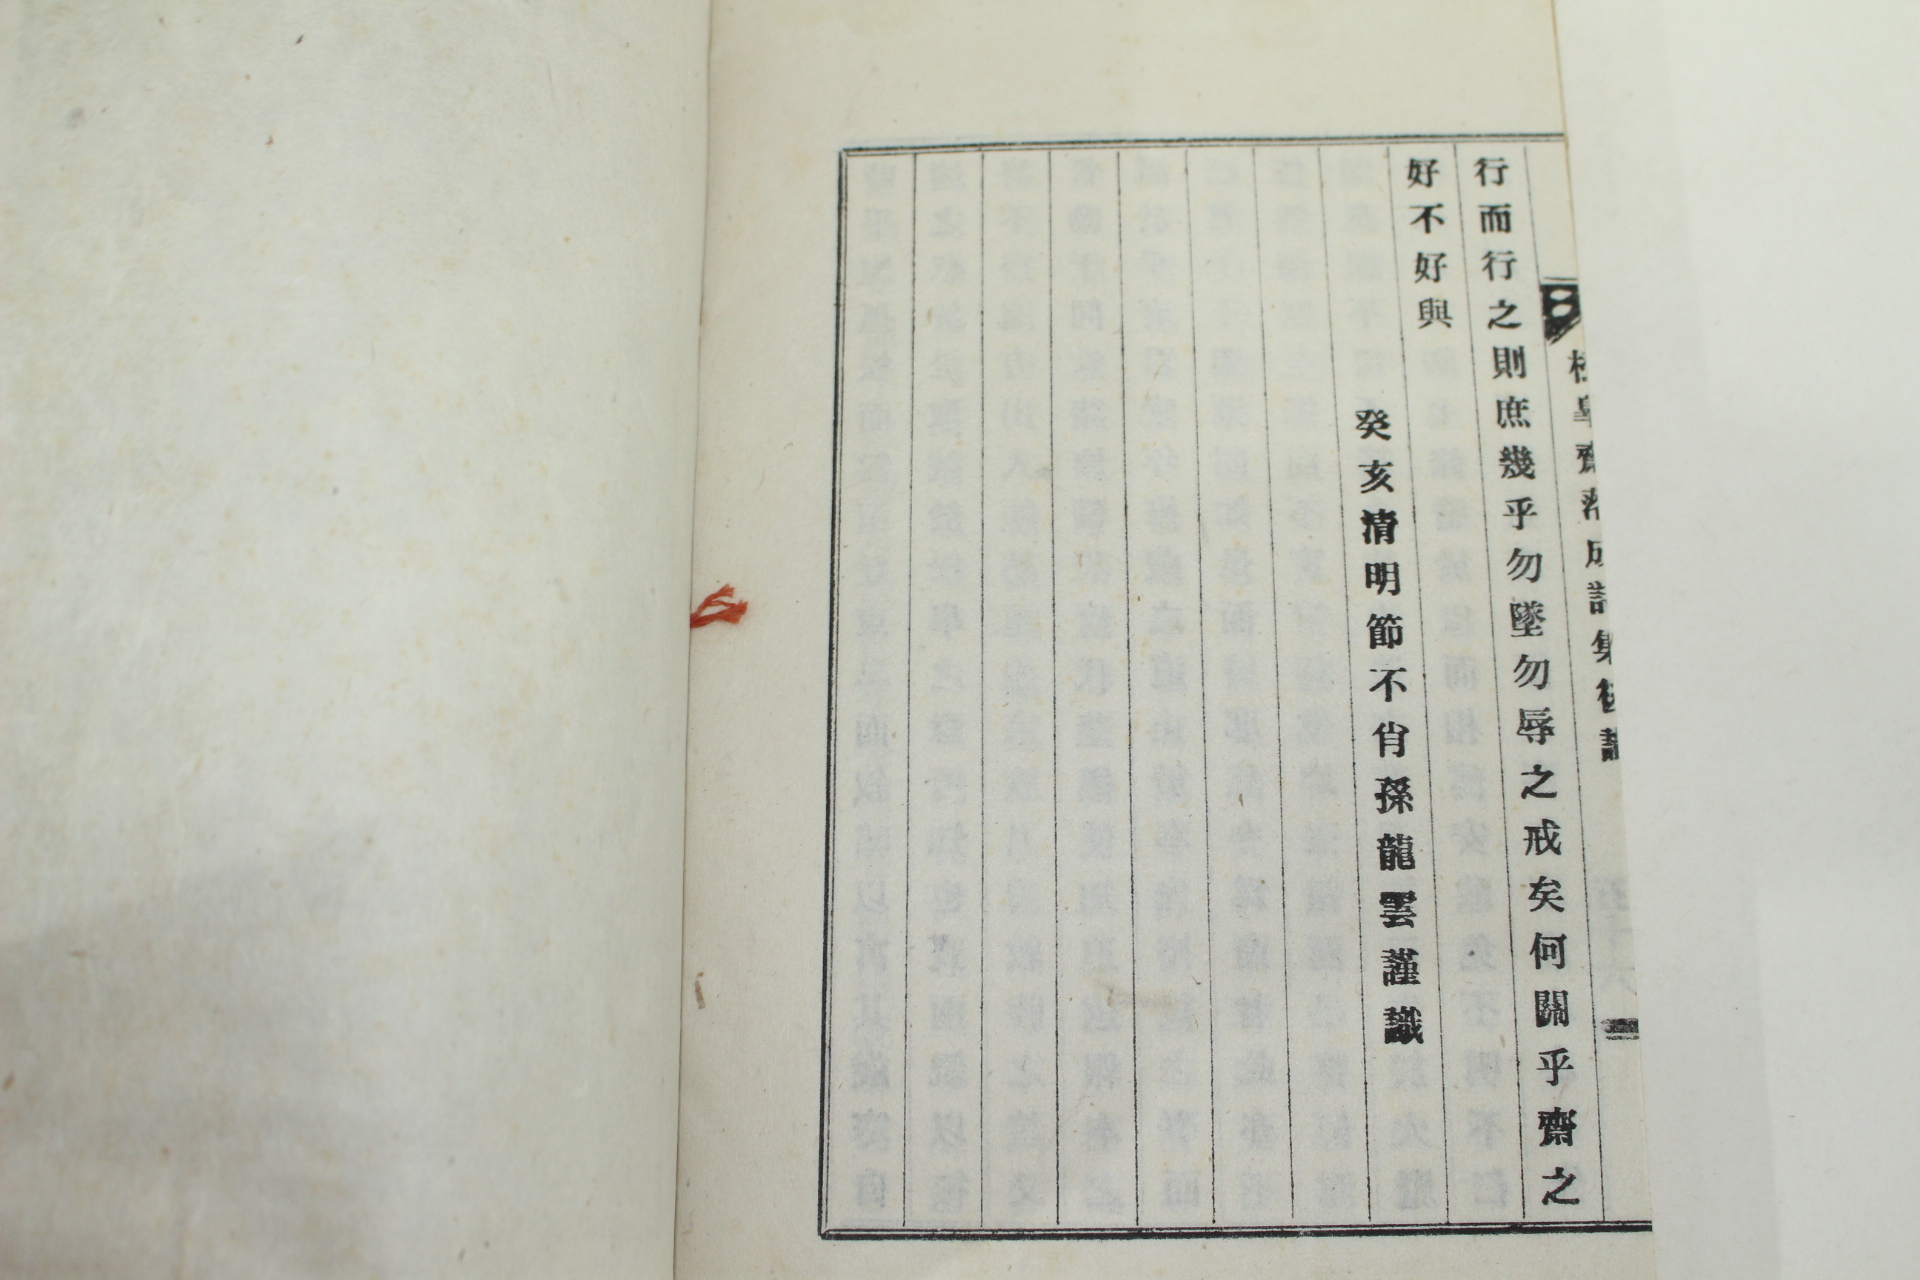 行而行之則庶幾乎勿墜勿辱之戒矣何關乎齋之
好不好與
癸亥清明節不肖孫龍雲謹識
皐齋落成詩集後識